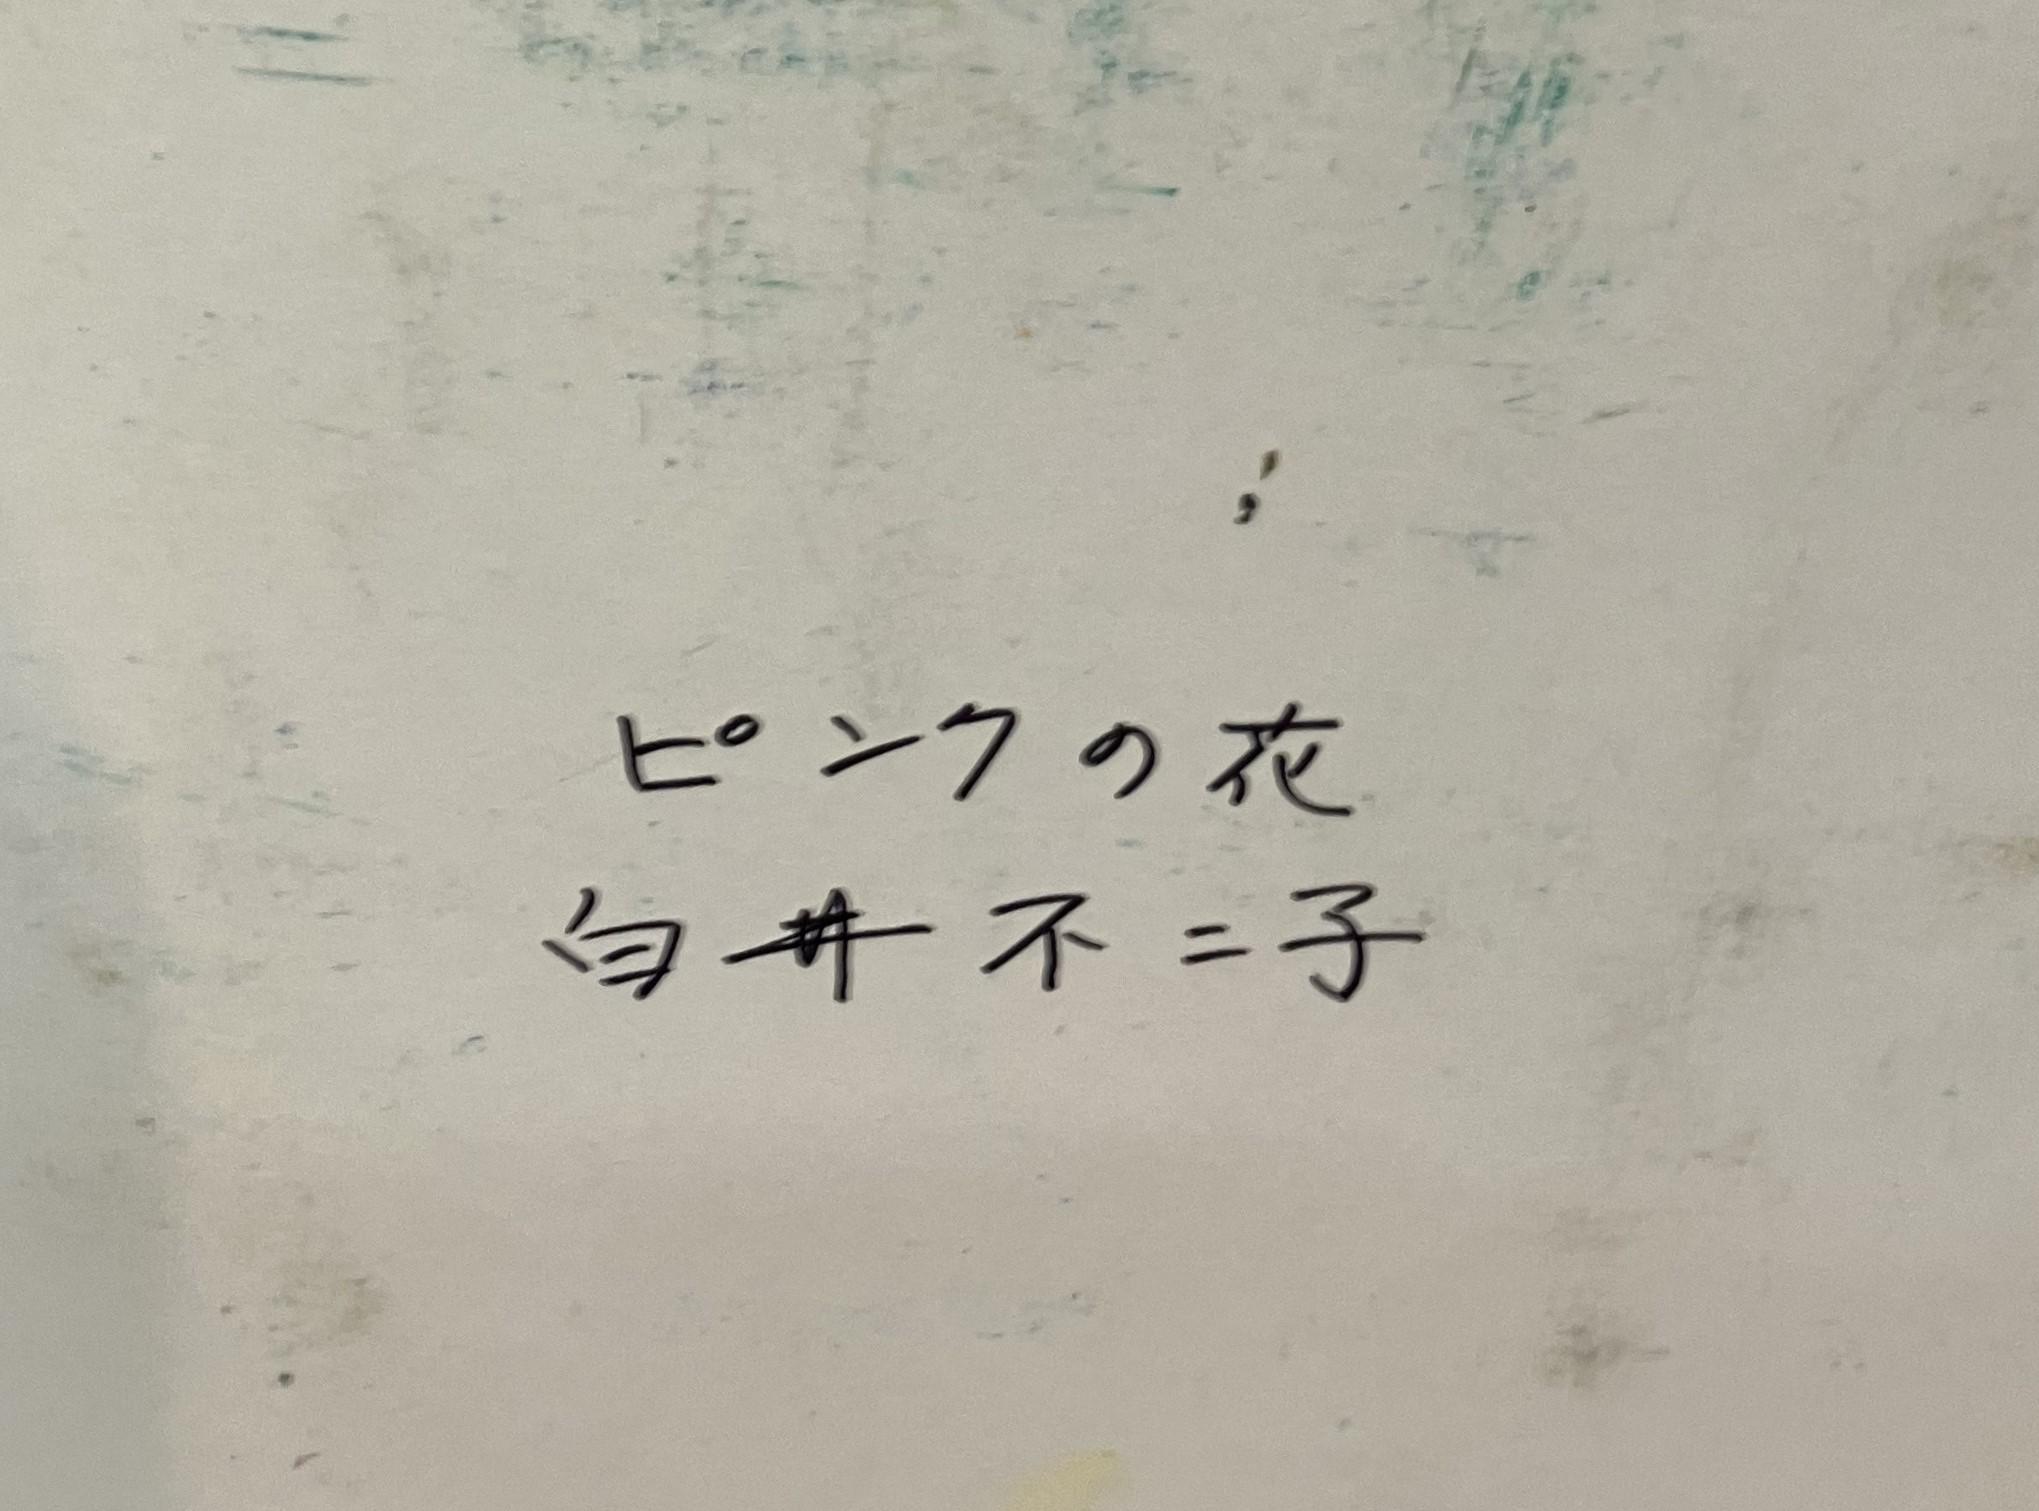 ピンクの花
白井不二子